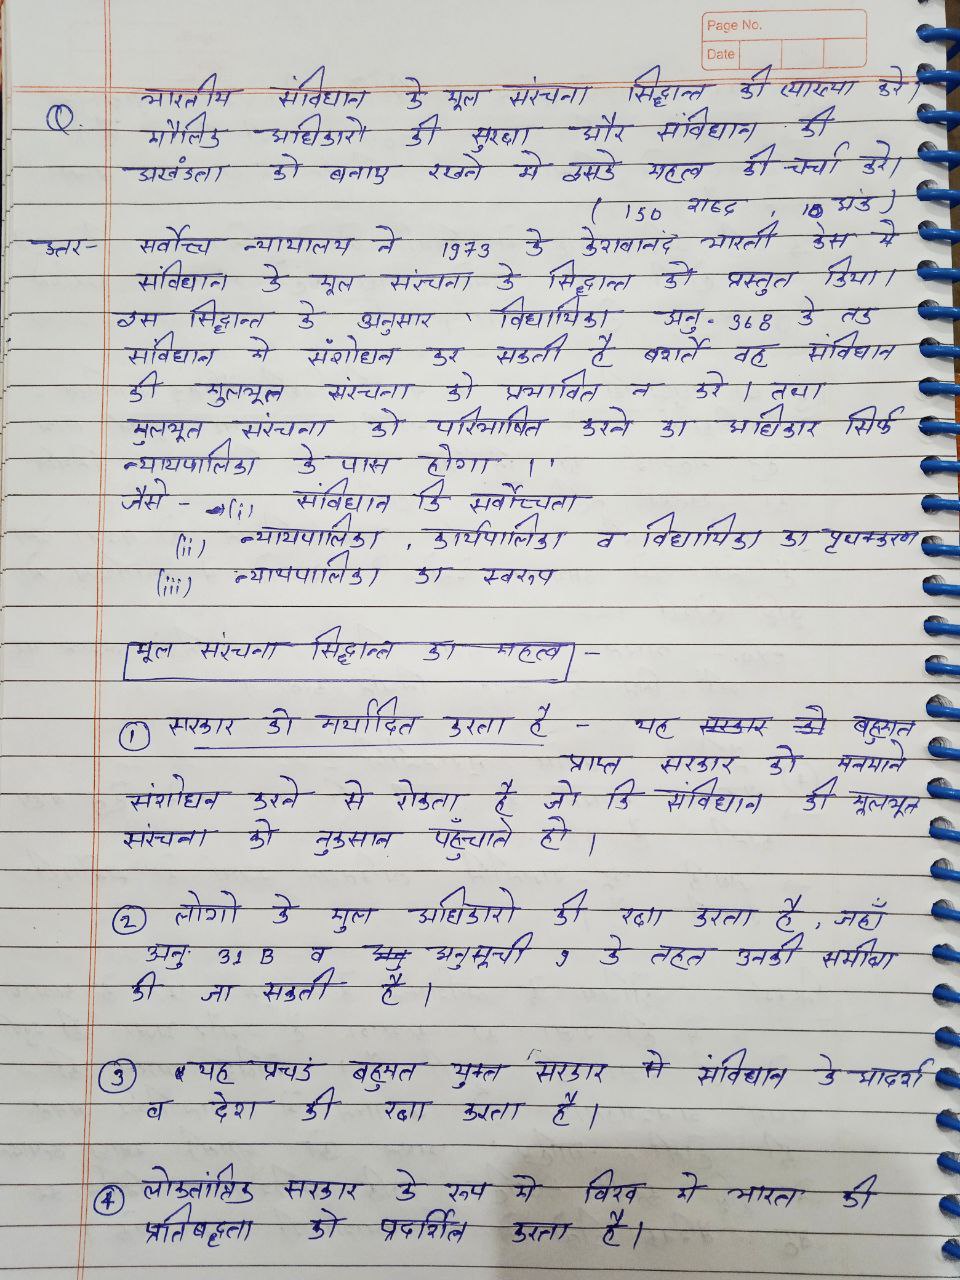 Page No.
Date
Q. भारतीय संविधान के मूल संरचना सिद्धान्त की व्याख्या करे।
मौलिक अधिकारो की सुरक्षा और संविधान की
अखंडता को बनाए रखने मे इसके महत्व की चर्चा करे।
( 150 शब्द , 10 अंक )
उत्तर- सर्वोच्च न्यायालय ने 1973 के केशवानंद भारती केस मे
संविधान के मूल संरचना के सिद्धान्त को प्रस्तुत किया।
इस सिद्धान्त के अनुसार विधायिका अनु. 368 के तक
संविधान मे संशोधन कर सकती है बशर्ते वह संविधान
की मुलभूल संरचना को प्रभावित न करे। तथा
मुलभूत संरचना को परिभाषित करने का अधिकार सिर्फ
न्यायपालिका के पास होगा ।
जैसे - (i) संविधान कि सर्वोच्चता
(ii) न्यायपालिका , कार्यपालिका व विधायिका का पृथक्करण
(iii) न्यायपालिका का स्वरुप
मूल संरचना सिद्धान्त का महत्व -
① सरकार को मर्यादित करता है - यह सरकार को बहुमत
प्राप्त सरकार को मनमाने
संशोधन करने से रोकता है जो कि संविधान की मूलभूत
संरचना को नुकसान पहुँचाते हो।
② लोगो के मुल अधिकारो की रक्षा करता है , जहाँ
अनु. 31 B व अनु अनुसूची 9 के तहत उनकी समीक्षा
की जा सकती है।
③ यह प्रचडं बहुमत युक्त सरकार से संविधान के आदर्श
व देश की रक्षा करता है।
④ लोकतांत्रिक सरकार के रूप मे विश्व मे भारत की
प्रतिबद्धता को प्रदर्शित करता है।